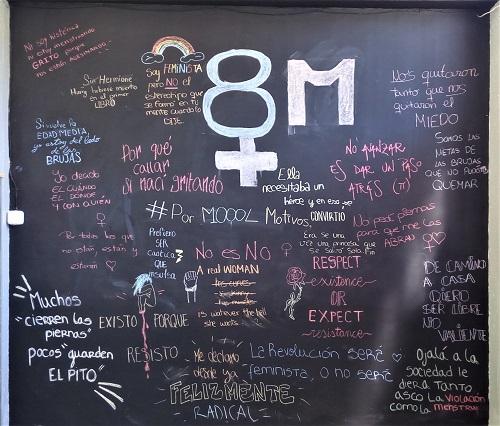 Ni soy histérica
ni estoy menstruando
GRITO porque
nos están ASESINANDO
Soy FEMINISTA
pero NO el
estereotipo que
se formó en tu
mente cuando lo
DIJE.
8M
Nos quitaron
tanto que nos
quitaron el
MIEDO
Sin Hermione
Harry hubiese muerto
en el primer
LIBRO
Si vuelve la
EDAD MEDIA,
yo estoy del lado
de las
BRUJAS
Por qué
callar
si nací gritando
NO AVANZAR
ES DAR UN PASO
ATRÁS
SOMOS LAS
NIETAS DE
LAS BRUJAS
QUE NO PUDISTEIS
QUEMAR
Yo decido
EL CUÁNDO
EL DÓNDE
Y CON QUIÉN
Ella
necesitaba un
héroe y en eso se
CONVIRTIÓ
#Por M000L Motivos
No pedí piernas
para que me las
ABRAN
Por todas las que
no están, están y
estarán
Prefiero
SER
que
insulta
No es No
Era se una
vez una princesa que
se salvó sola. Fin
A real WOMAN
is whatever the hell
she wants
RESPECT
existence
OR
EXPECT
resistance
DE CAMINO
A CASA
QUIERO
SER LIBRE
NO
VALIENTE
Muchos
"cierren las
piernas"
pocos "guarden
EL PITO"
EXISTO PORQUE
RESISTO
Me declaro
desde ya
FELIZMENTE
RADICAL
La Revolución será
feminista, o no será
Ojalá a la
sociedad le
diera tanto
asco La violación
como la menstrua